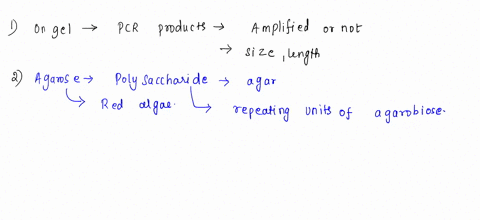 1) On gel → PCR products → Amplified or not
→ size, length
2) Agarose → Polysaccharide → agar
↳ Red algae. ↳ repeating units of agarobiose.